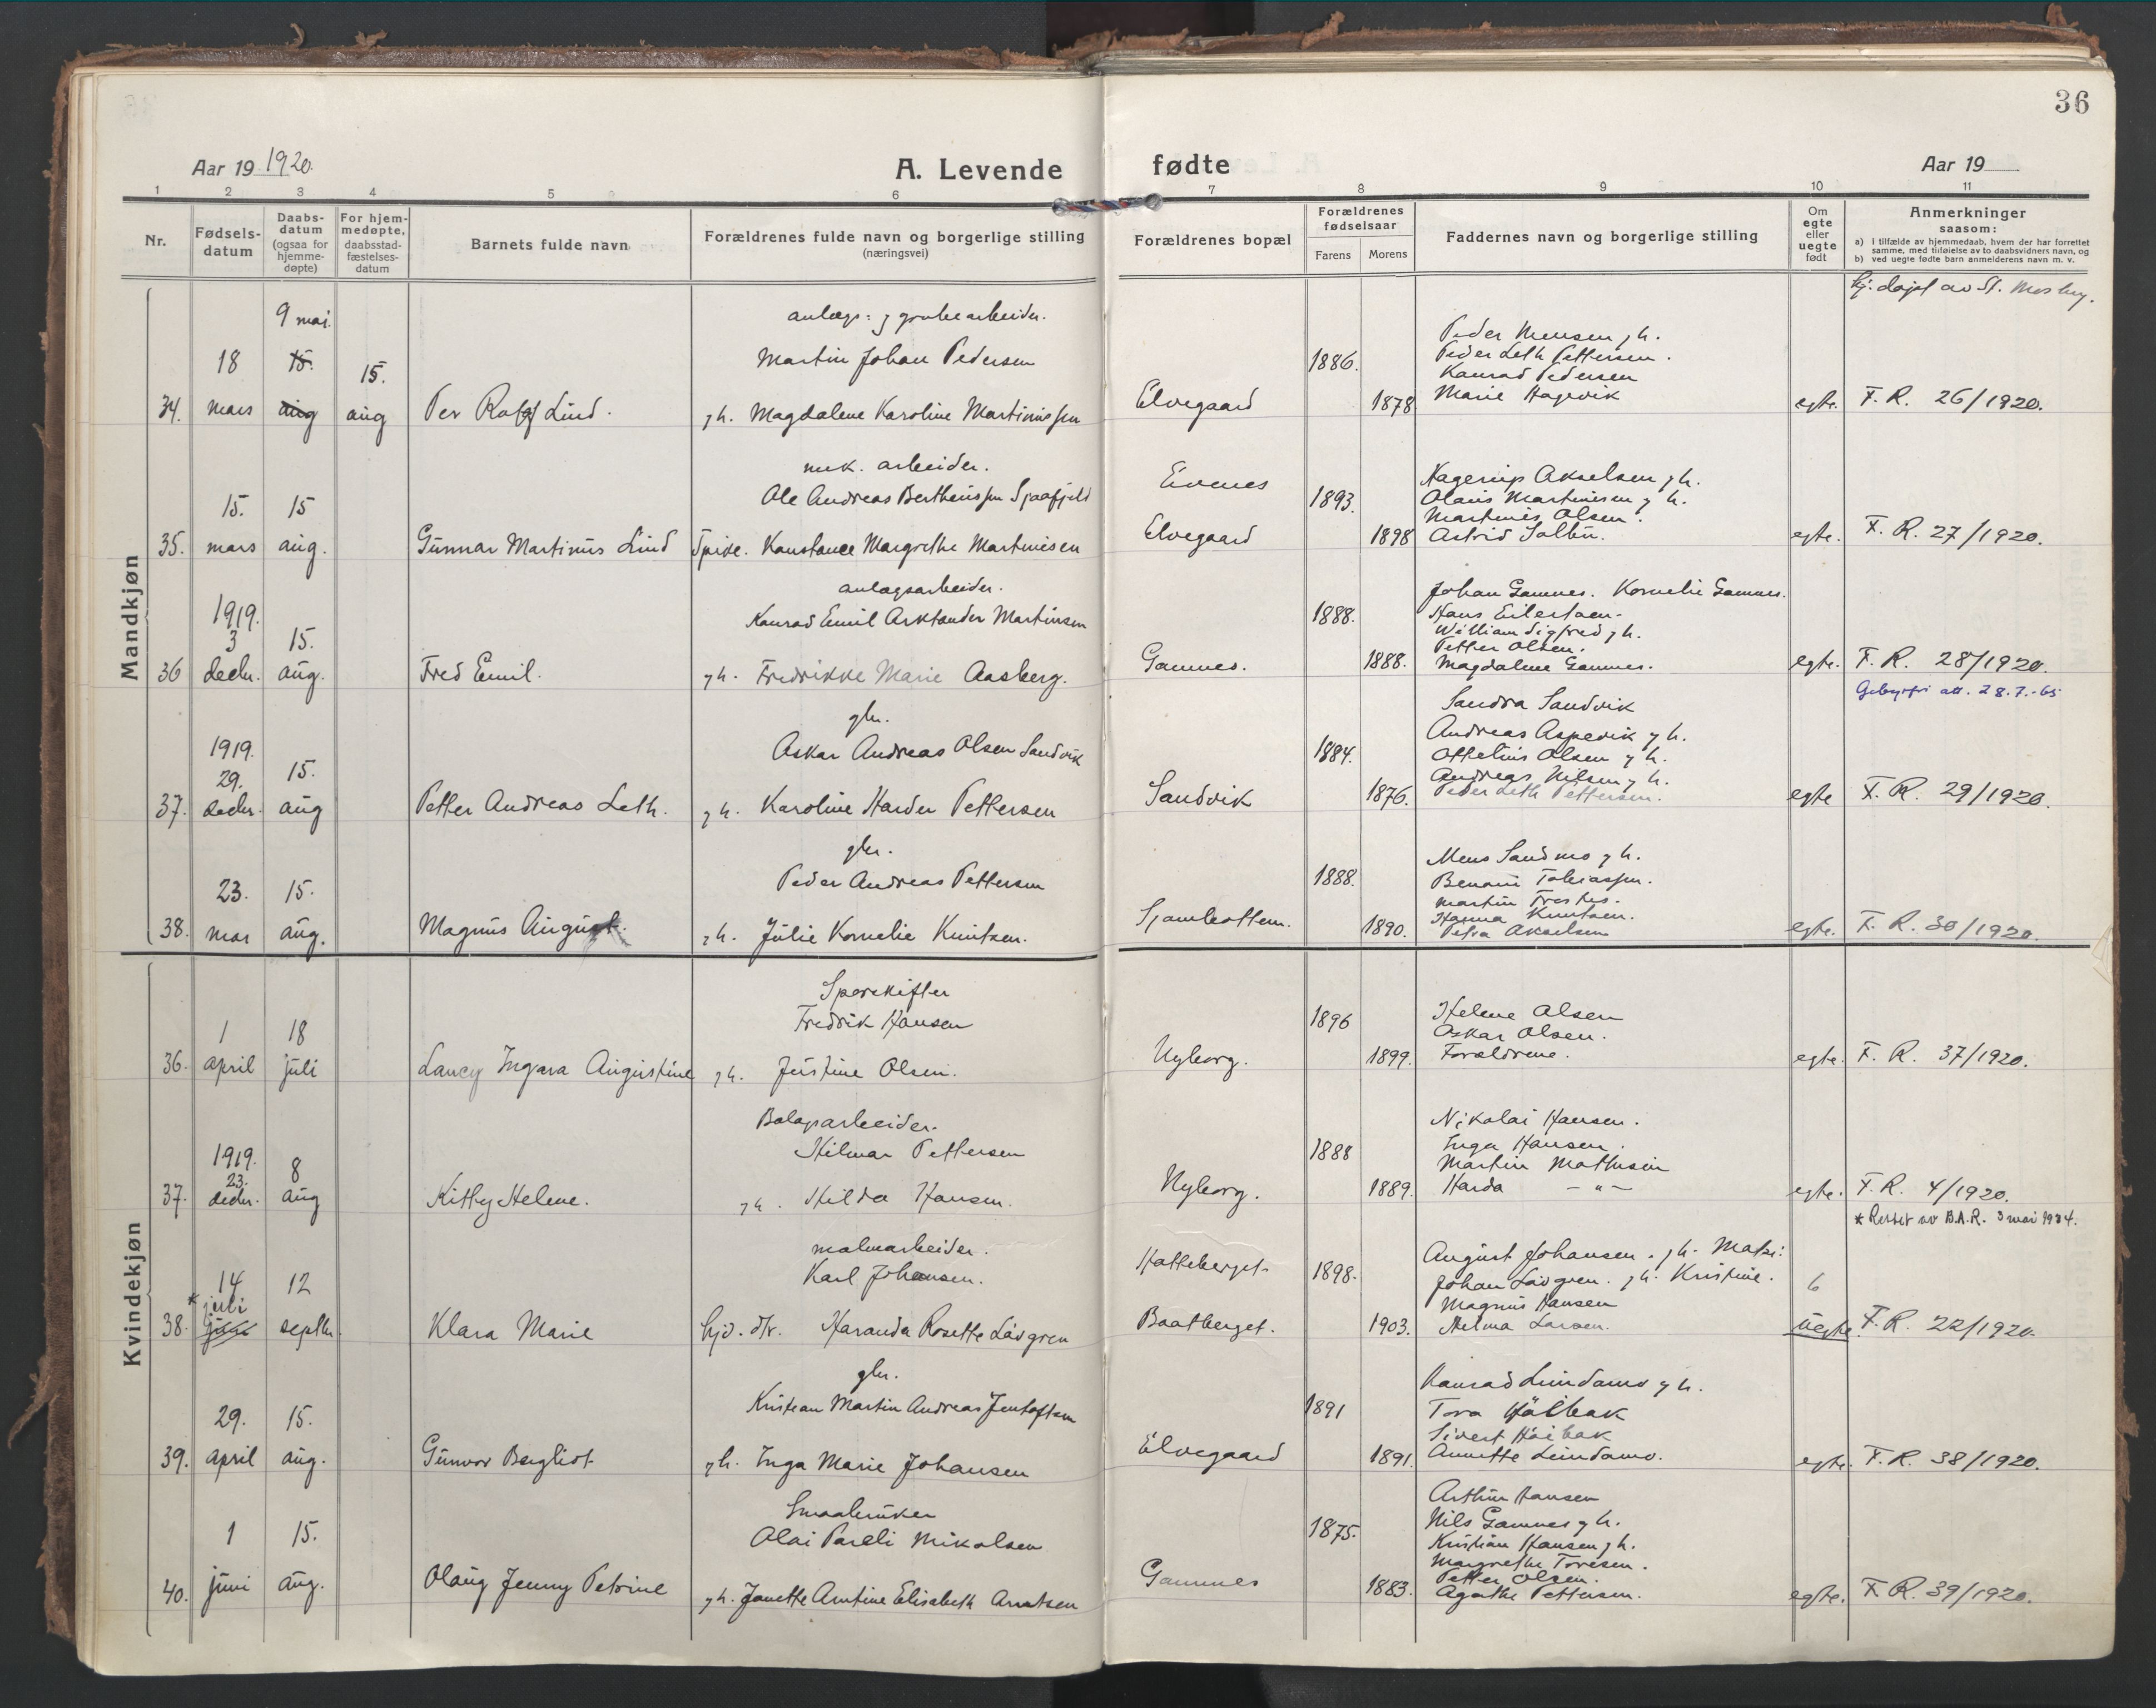 36
Aar 19 1920.
A. Levende fødte
Aar 19
1 2 3 4 5 6 7 8 9 10 11
Nr.
Fødsels-
datum
Daabs-
datum
(ogsaa for
hjemme-
døpte)
For hjem-
medøpte,
daabsstad-
fæstelses-
datum
Barnets fulde navn
Forældrenes fulde navn og borgerlige stilling
(næringsvei)
Forældrenes bopæl
Forældrenes
fødselsaar
Farens Morens
Faddernes navn og borgerlige stilling
Om
egte
eller
uegte
født
Anmerkninger
saasom:
a) i tilfælde av hjemmedaab, hvem der har forrettet
samme, med tilføielse av to daabsvidners navn, og
b) ved uegte fødte barn anmelderens navn m. v.
Mandkjøn
34. 18 mars
9 mai
15. aug
15. aug
Per Rolf Lind.
anlegs- g grubearbeider.
Martin Johan Pedersen
g h. Magdalene Karoline Martinussen
Elvegaard
1886. 1878
Peder Mensen g h.
Peder Leth Pettersen.
Konrad Pedersen
Marie Hagevik
egte.
F. R. 26/1920.
35. 15. mars
15 aug.
Gunnar Martinus Lind
arbeider.
Ole Andreas Bertheussen Sjaafjeld
Konstance Margrethe Martinisen
Evenes
Elvegaard
1893. 1898
Hagerup Akselsen g h.
Olaus Martinisen g h.
Martinis Olsen.
Astrid
egte.
F. R. 27/1920.
36 1919. 3 decbr.
15. aug.
Fred Emil.
anlægsarbeider.
Konrad Emil Arktander Martinsen
g h. Fredrikke Marie Aasberg.
Gamnes.
1888. 1888.
Johan Gamnes. Kornelie Gamnes.
Hans Eilertsen.
William Sigfred g h.
Petter Olsen.
Magdalene Gamnes.
egte.
F. R. 28/1920.
Gebyrfri att. 28.7.-65
37. 1919. 29. decbr.
15. aug
Petter Andreas Leth.
gbr.
Oskar Andreas Olsen Sandvik
g h. Karoline Harder Pettersen
Sandvik
1884. 1876.
Sandra Sandvik
Andreas Aspevik g h.
Ottelius Olsen g h.
Andreas Nilsen g h.
Peder Leth Pettersen.
egte
F. R. 29/1920.
38. 23. mar
15. aug.
Magnus August.
gbr.
Peder Andreas Pettersen
g h. Julie Kornelie Knutsen.
Sjombotten.
1888. 1890.
Mens Sandmo g h.
Benoni Tobiassen.
Hanna Knutsen.
Petra Akselsen
egte.
F. R. 30/1920.
Kvindekjøn
36. 1 april
18 juli
Laucy Ingvara Augustine
Sporskifter
Fredrik Hansen
g h. Justine Olsen.
Nyborg.
1896 1899.
Helene Olsen
Oskar Olsen.
Forældrene.
egte.
F. R. 37/1920.
37. 1919. 23. decbr.
8 aug
Kitty Helene.
Bolagsarbeider.
Hilmar Pettersen
g h. Hilda Hansen.
Nyborg.
1888 1889.
Nikolai Hansen.
Inga Hansen.
Martin Mathisin
Harda — " —
egte.
F. R. 4/1920.
* Rettet av B.A.R. 3 mai 1934.
38. 14 * juli
12 septbr.
Klara Marie
malmarbeider.
Karl Johansen.
Haranda Rosette Løvgren
Hatteberget
Baatberget.
1898. 1903.
August Johansen. g h. Matri:
Johan Løvgren. g h. Kristine.
Magnus Hansen
Helma Larsen.
6
uegte.
F. R. 22/1920.
39. 29. april
15. aug.
Gunvor Bergliot
gbr.
Kristian Martin Andreas Jentoftsen
g h. Inga Marie Johansen
Elvegaard
1891 1891.
Konrad Leindamo g h.
Tora Høibak
Sivert Høibak
Annette Leindamo.
egte.
F. R. 38/1920.
40. 1 juni
15. aug.
Olaug Jenny Petrine
Smaabruker
Olai Pareli Mikalsen
g h. Janette Arntine Elisabeth Arntsen
Gamnes
1875. 1883.
Arthur Hansen
Nils Gamnes g h.
Kristian Hansen g h.
Margrethe Toresen.
Petter Olsen.
Agathe Pettersen.
egte.
F. R. 39/1920.